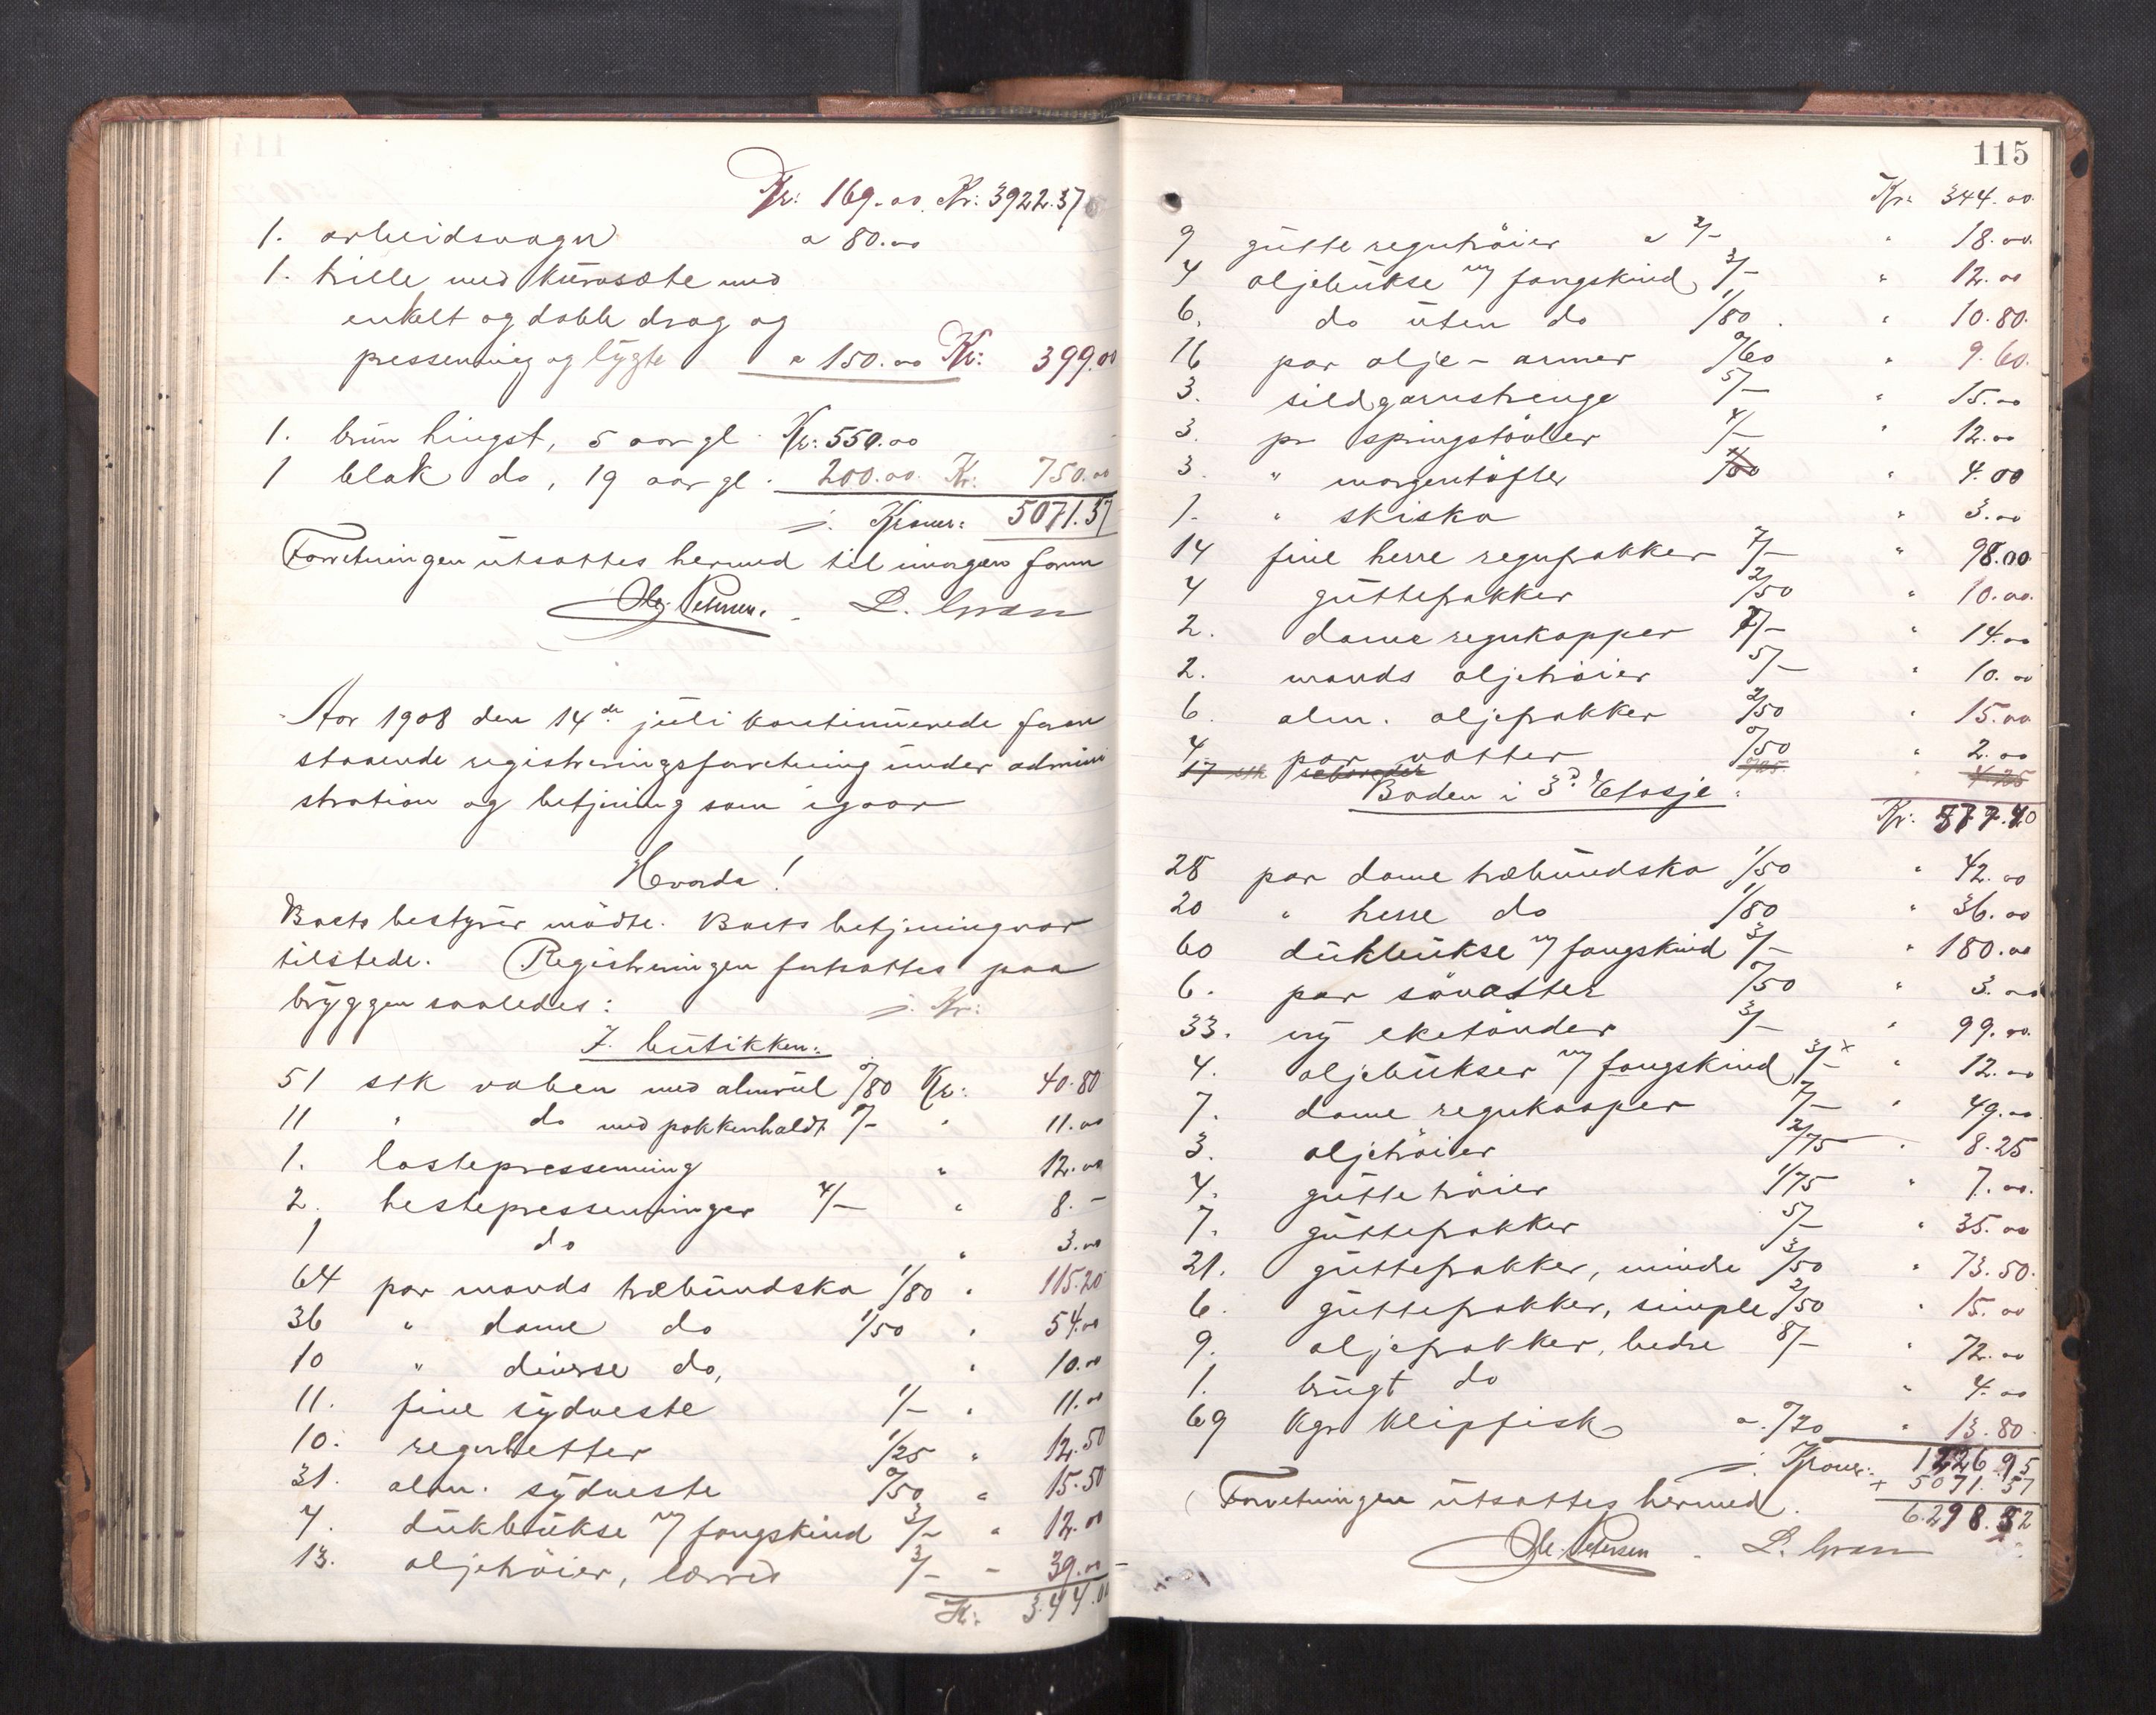 Kr: 169.00. Kr: 3922.57
1. arbeidsvogn a 80.00
1. trille med kurvsæte med
enkelt og dobb drag og
pressenning og lygte a 150.00 Kr: 399.00
1. brun hingst, 5 aar gl. Kr: 550.00
1 blak do, 19 aar gl. 200.00. Kr: 750.00
Kroner: 5071.57
Forretningen utsattes hermed til imorgen form
Ole Petersen. L. Gram
Aar 1908 den 14de juli kontinuerede foran
staaende registreringsforretning under admini
stration og betjening som igaar
Hvorda!
Boets bestyrer mødte. Boets betjening var
tilstede. Registreringen fortsattes paa
bryggen saaledes:
Kr:
I butikken:
51 stk vaben med almuel 0/80 Kr: 40.80
11 " do med pokkenholdt 1/- " 11.00
1. lastepressenning " 12.00
2. hestepressenninger 4/- " 8.-
1 do " 3.00
64 par mands træbundsko 1/80 " 115.20
36 " dame do 1/50 " 54.00
10 " diverse do, " 10.00
11. fine sydveste 1/- " 11.00
10. regnhetter 1/25 " 12.50
31. alm. sydveste 0/50 " 15.50
4. dukbukse m/ fangskind 3/- " 12.00
13. oljetrøier, lærred 3/- " 39.00
Kr: 344.00
115
Kr: 344.00
9 gutte regntrøier a 2/- " 18.00.
4 oljebukse m/ fangskind 3/- " 12.00
6. do uten do 1/80. " 10.80.
16 par olje-armer 0/60 " 9.60.
3. sildgarnstrenge 5/- " 15.00
3. pr springstøvler 4/- " 12.00
3. " morgentøfler " 4.00
1. " skisko " 3.00
14 fine herre regnfrakker 7/- " 98.00
4 guttefrakker 2/50 " 10.00.
2. dame regnkapper 7/- " 14.00
2. mands oljetrøier 5/- " 10.00
6. alm. oljefrakker 2/50 " 15.00
4. par votter 0/50 " 2.00
17 stk 0/25 " 4.25
Boden i 3d Etasje:
Kr: 577.40
28 par dame træbundsko 1/50 " 42.00
20 " herre do 1/80 " 36.00
60 dukbukse m/ fangskind 3/- " 180.00
6. par søvatter 0/50 " 3.00
33. ny eketønder 3/- " 99.00.
4. oljebukser m/ fangskind 3/- x " 12.00
7. dame regnkaaper 7/- " 49.00
3. oljetrøier 2/75 " 8.25
4. guttetrøier 1/75 " 7.00.
7. guttefrakker 5/- " 35.00
21. guttefrakker, mindre 3/50 " 73.50.
6. guttefrakker, simple 2/50 " 15.00
9. oljefrakker, bedre 8/- " 72.00
1. brugt do " 4.00
69 kgr klipfisk a 0/20 " 13.80.
Kroner: 1226.95
+ 5071.57
Forretningen utsattes hermed. 6.298.52
Ole Petersen. L. Gram